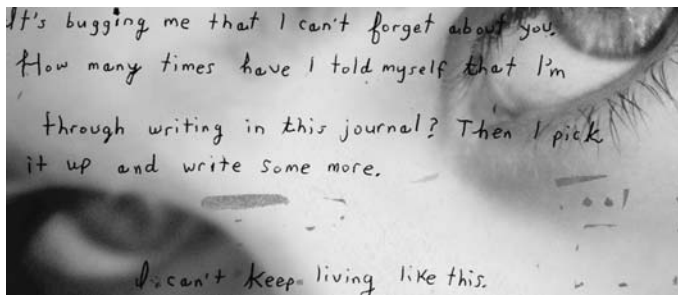 It's bugging me that I can't forget about you.
How many times have I told myself that I'm
through writing in this journal? Then I pick
it up and write some more.
I can't keep living like this.